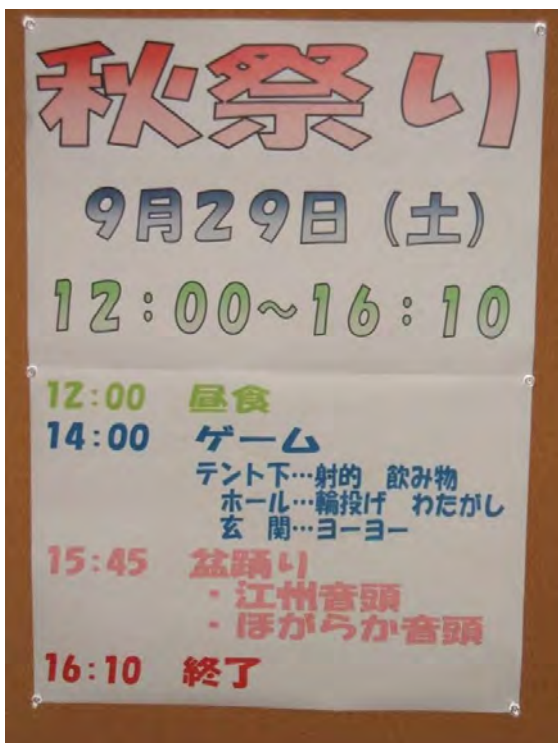 秋祭り
9月29日(土)
12:00~16:10
12:00 昼食
14:00 ゲーム
テント下…射的 飲み物
ホール…輪投げ わたがし
玄 関…ヨーヨー
15:45 盆踊り
・江州音頭
・ほがらか音頭
16:10 終了